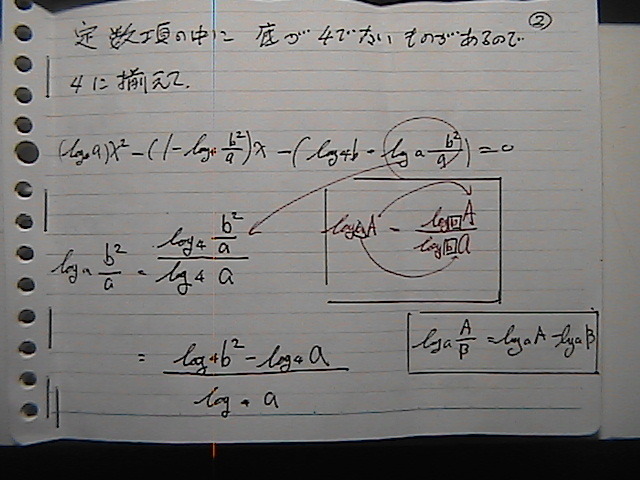 ②
定数項の中に 底が4でないものがあるので
4に揃えて.
(log₄a)x² - (1 - log₄ b²/a)x - (log₄b - log a b²/a) = 0
log a b²/a = log₄ b²/a / log₄ a
log a A = log b A / log b a
= log₄b² - log₄a / log₄ a
log a A/B = log a A - log a B